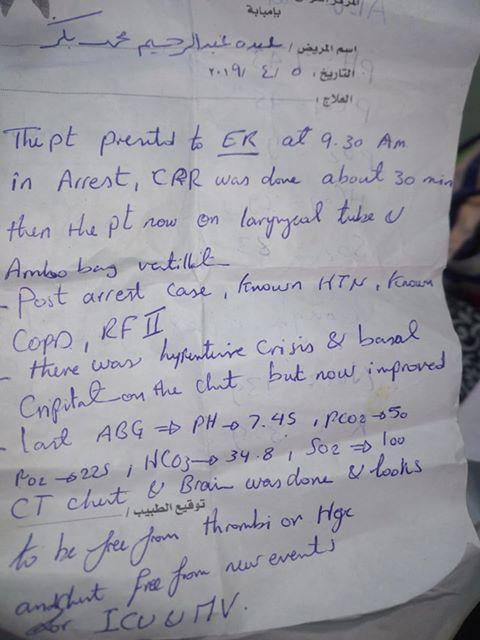 بإمبابة
اسم المريض / عبده عبدالرحيم محمد بكر
التاريخ : ٥ / ٤ / ٢٠١٩
العلاج :
The pt presntd to ER at 9.30 Am
in Arrest, CPR was done about 30 min
then the pt now on laryngeal tube &
Ambo bag
- Post arrest case, known HTN, known
COPD, RF II
- there was hypertensive crisis & basal
Cripitation on the chest but now improved
- last ABG ⇒ PH → 7.45, PCO2 → 50
PO2 → 225, HCO3 → 34.8, SO2 ⇒ 100
CT chest & Brain was done & looks
توقيع الطبيب /
to be free from thrombi or Hge
and chest free from new events
for ICU & MV.